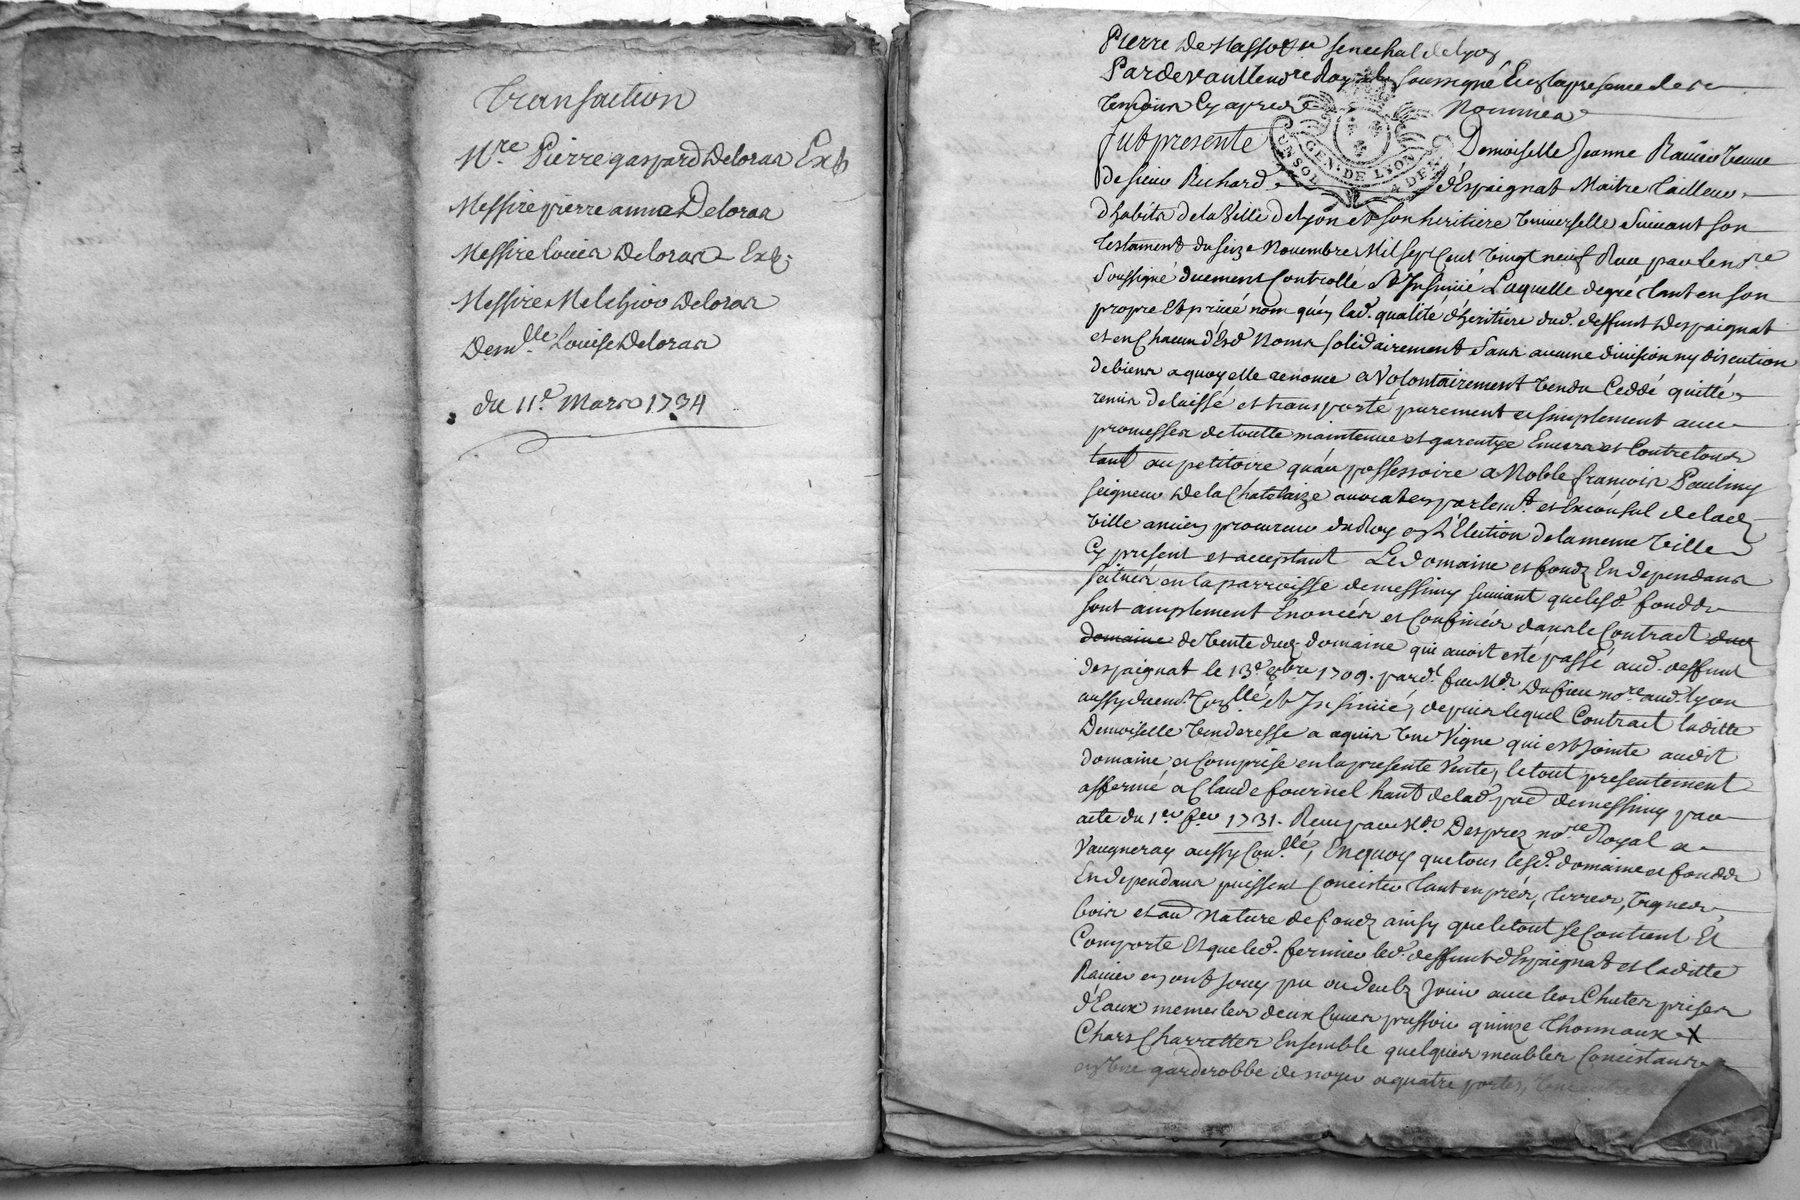 Transaction
Mre. Pierre gaspard Deloras Exp
Messire pierre anne Deloras
Messire Louis Deloras Exp.
Messire Melchior Deloras
Demlle. Louise Deloras
du 11e. Mars 1734
Pierre De Masso senechal de lyon
Pardevant le nore Royal soussigné En la presence des
temoins Cy apres Nommés
fut presente Demoiselle Jeanne Ravier veuve
de sieur Richard d'Espaignat Maitre tailleur
d'habits de la Ville de lyon et son heritiere universelle suivant son
testament du seize Novembre Mil sept Cent vingt neuf Reçu par le nore
soussigné duement Controllé et Insinué Laquelle de gré tant en son
propre et privé nom qu'en lad. qualité d'heritiere dud. deffunt Despaignat
et en Chacun d'Esd Noms solidairement sans aucune division ny discution
de biens a quoy elle renonce a Volontairement vendu Ceddé quitté
remis delaissé et transporté purement et simplement avec
promesses de toutte maintenue et garentye Envers et Contre tous
tant au petitoire qu'au possessoire a Noble françois Paulin
seigneur De la Chatelaize avocat en parlemt. et Exconsul de lad
Ville ancien procureur du Roy en l'Election de la meme Ville
Cy present et acceptant Le domaine et fondz En dependans
scitués en la parroisse de messimy suivant que lesd. fondz
sont amplement Enoncés et Confinés dans le Contract dud
domaine de vente dud. domaine qui avoit esté passé aud. deffunt
despaignat le 13e. 8bre 1709. pard. feu Me. Dufieu nore. aud. lyon
aussy duemt. Conllé et Insinué, depuis lequel Contract laditte
Demoiselle venderesse a aquis une Vigne qui est jointe audit
domaine et Comprise en la presente Vente, le tout presentement
affermé a Claude fournel hant. de lad. par. de messimy par
acte du 1er. 1731. Reçu par Me. Desprez nore Royal a
Vaugneray aussy Conllé, En quoy que tous lesd. domaine et fondz
En dependans puissent Concister tant en prés, terres, vignes,
bois et au. nature de fondz ainsy que le tout se Contient Et
Comporte et que led. fermier led. deffunt d'Espaignat et laditte
Ravier en ont jouy pu ou deub Jouir avec les Chutes prises
d'Eaux memes les deux Cuves pressoir quinze thonnaux X
Chars Charrettes Ensemble quelques meubles Concistans
en une garderobbe de noyer a quatre portes,
CONSOL
GEN. DE LYON
4 DEN